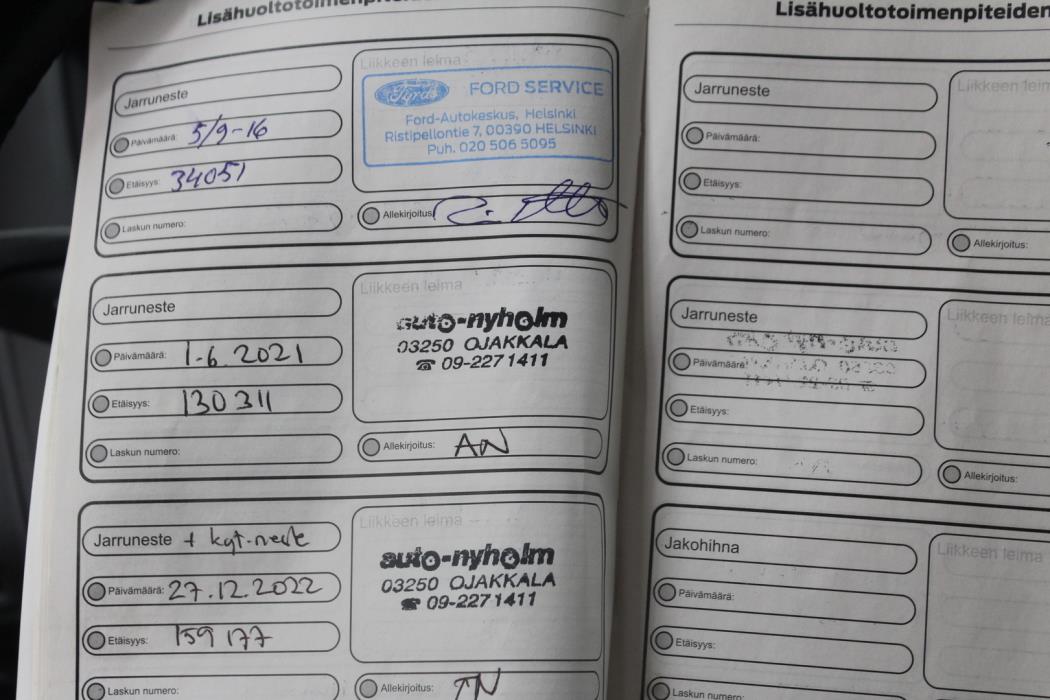 Lisähuoltotoimenpiteiden
Jarruneste
Päivämäärä: 5/9-16
Etäisyys: 34051
Laskun numero:
Liikkeen leima
Ford
FORD SERVICE
Ford-Autokeskus, Helsinki
Ristipellontie 7, 00390 HELSINKI
Puh. 020 506 5095
Allekirjoitus:
Jarruneste
Päivämäärä: 1.6.2021
Etäisyys: 130311
Laskun numero:
Liikkeen leima
auto-nyholm
03250 OJAKKALA
☎ 09-2271411
Allekirjoitus: AN
Jarruneste + kyt.neste
Päivämäärä: 27.12.2022
Etäisyys: 159177
Laskun numero:
Liikkeen leima
auto-nyholm
03250 OJAKKALA
☎ 09-2271411
Allekirjoitus: TN
Lisähuoltotoimenpiteiden
Jarruneste
Päivämäärä:
Etäisyys:
Laskun numero:
Liikkeen leim
Allekirjoitus:
Jarruneste
Päivämäärä:
Etäisyys:
Laskun numero:
Liikkeen leima
Allekirjoitus:
Jakohihna
Päivämäärä:
Etäisyys:
Laskun numero:
Liikkeen leima